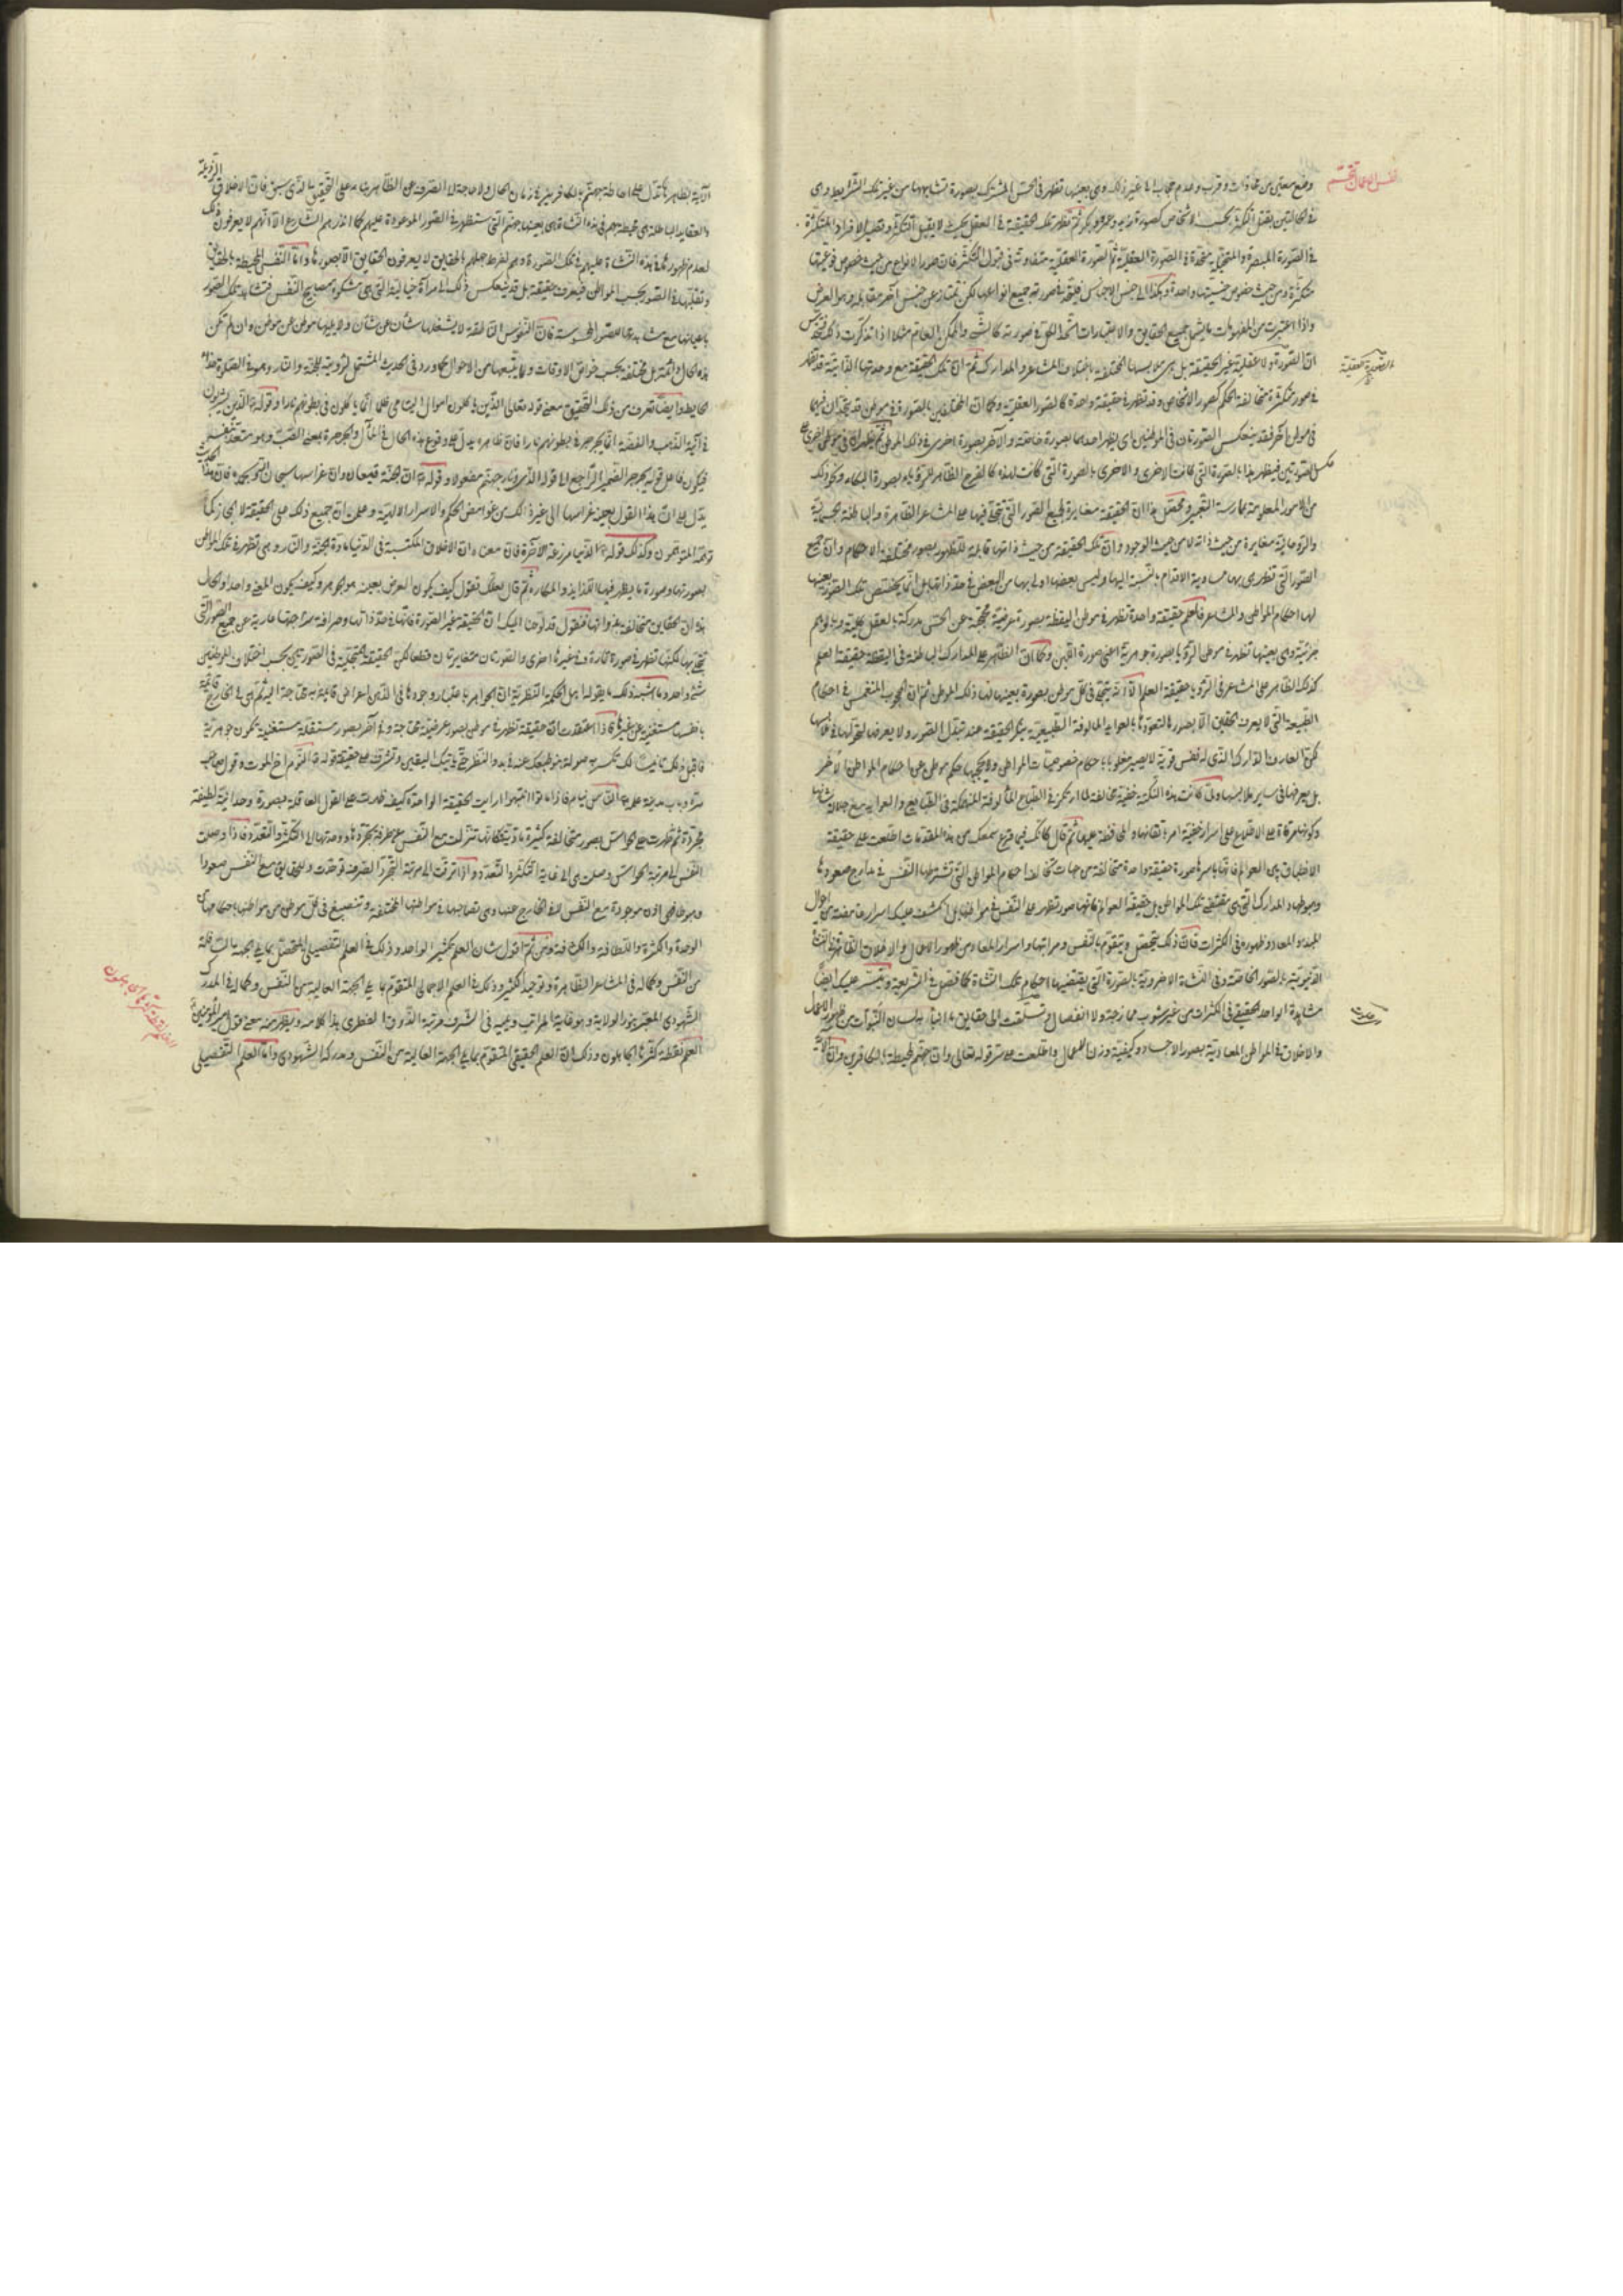 نفس الاعمال تتجسّم
وضع معيّن من محاذات وقرب وعدم حجاب الى غير ذلك وهى بعينها تظهر فى الحس المشترك بصورة تشابهها من غير تلك الشرايط وهى
فى الحالتين يقبل التكثر بحسب الاشخاص كصورة زيد وعمرو وبكر ثم تظهر تلك الحقيقة فى العقل بحيث لا يقبل التكثر وتصير الافراد المتكثرة
فى الصورة المبصرة والمتخيلة متحدة فى الصورة العقلية ثم الصورة العقلية متفاوتة فى قبول التكثر فان صور الانواع من حيث خصوص نوعيتها
متكثرة ومن حيث خصوص جنسيتها واحدة وهكذا الى جنس الاجناس فيتحد فى صورته جميع انواعها لكن تمتاز عن جنس آخر مقابله وهو العرض
واذا اعتبرت من المفهومات ما يشمل جميع الحقايق والاعتبارات اتحد الكل فى صورته كالشئ والممكن العام مثلا اذا تذكرت ذلك
ان الصورة ولا عقلية غير الحقيقة بل هى ملابسها المختلفة باختلاف المشاعر والمدارك ثم ان تلك الحقيقة مع وحدتها الذاتية قد تظهر
الصورة العقلية
فى صور متكثرة متخالفة الحكم كصور الاشخاص وقد تظهر فى حقيقة واحدة كالصور العقلية وكما ان المختلفين بالصور فى موطن قد يتحدان فيها
فى موطن آخر فقد ينعكس الصورتان فى الموطنين اى يظهر احدهما بصورة خاصة والآخر بصورة اخرى فى ذلك الموطن ثم يظهران فى موطن اخرى
عكس الصورتين فيظهر هذا بالصورة التى كانت للاخرى والاخرى بالصورة التى كانت لهذه كالفرح الظاهر فى الرؤيا بصورة البكاء ونحو ذلك
من الامور المعلومة بممارسة التعبير فتحصّل من هذا ان الحقيقة مغايرة لجميع الصور التى تتجلى فيها على المشاعر الظاهرة والباطنة الجسمانية
والروحانية مغايرة من حيث ذاته لا من حيث الوجود وان تلك الحقيقة من حيث ذاتها قابلة للظهور بصور مختلفة الاحكام وان جميع
الصور التى تظهر هى بها متساوية الاقدام بالنسبة اليها وليس بعضها اولى بها من البعض فى حد ذاتها بل انما يخصص تلك الصورة بعينها
لها احكام المواطن والمشاعر فالعلم حقيقة واحدة تظهر فى موطن اليقظة بصورة عرضية محتجبة عن الحس مدركة بالعقل كلية وبالوهم
جزئية وهى بعينها تظهر فى موطن الرؤيا بصورة جوهرية اعنى صورة اللبن وكما ان الظاهر على المدارك الباطنة فى اليقظة حقيقة العلم
كذلك الظاهر على المشاعر فى الرؤيا حقيقة العلم الا انه يتجلى فى كل موطن بصورة بعينها لها ذلك الموطن ثم ان المحجوب المنغمس فى احكام
الطبيعة التى لا يعرف الحقايق الا بصورها المتعودة بالعوايد المالوفة الطبيعية ينكر الحقيقة عند تبدل الصور ولا يعرضها لتحولها فى ملابسها
لكن العارف الدّراك الذى له نفس قوية لا يصير مغلوبا باحكام خصوصيات المواطن ولا يحجبها حكم موطن عن احكام المواطن الاخر
بل يعرفها فى ساير ملابسها ولما كانت هذه النكتة خفية مخالفة لما ارتكز فى الطبايع المألوفة المنهمكة فى القبايح والعوايد مع جلالة شأنها
وكونها مرقاة على الاطلاع على اسرار خفية امر باتقانها والمحافظة عليها ثم قال كانك فيما قرع سمعك من هذه المقدمات اطلعت على حقيقة
الانطباق بين العوالم فانها باسرها صورة حقيقة واحدة متخالفة من جهات تخالف احكام المواطن التى تشترطها النفس فى مدارج صعودها
وهبوطها والمدارك التى هى مقتضى تلك المواطن بل حقيقة العوالم كلها صور تظهر على النفس فى مواطنها بل انكشف عليك اسرار غامضة من احوال
المبدء والمعاد وظهوره فى الكثرات فان ذلك يتحصل ويتقوم بالنفس ومراتبها واسرار المعاد من ظهور الاعمال والاخلاق الظاهرة فى النشأة
الدنيوية بالصور الخاصة وفى النشأة الاخروية بالصورة التى يقتضيها احكام تلك النشأة كما فصل فى الشريعة وتيسر عليك ايضا
مشاهدة الواحد الحقيقى فى الكثرات من غير شوب ممازجة ولا انفصال وتسلقت الى حقايق ما انبأ به لسان النبوات من ظهور الاعمال
والاخلاق فى المواطن المعادية بصور الاجساد وكيفية وزن الاعمال واطلعت على سر قوله تعالى وان جهنم لمحيطة بالكافرين وان الآية
الآية بظاهرها تدل على احاطة جهنم بالكافرين فى زمان الحال ولا حاجة الى الصرف عن الظاهر بناء على التحقيق الذى سبق فان الاخلاق الرذيلة
والعقايد الباطلة هى محيطة بهم فى هذه النشأة هى بعينها جهنم التى ستظهر فى الصور الموعودة عليهم كما انذرهم الشارع الا انهم لا يعرفون ذلك
لعدم ظهورها فى هذه النشأة عليهم فى تلك الصورة وهم لفرط جهلهم بالحقايق لا يعرفون الحقايق الا بصورها واما النفس المحيطة بالحقايق
وتقلبها فى الصور بحسب المواطن فيعرف حقيقته بل قد ينعكس ذلك الى مرآة خياليته التى هى مشكوة مصابيح النفس فتشاهد تلك الصور
باعيانها مع مشاهدتها الصور المحسوسة فان النفوس التالقة لا يشغلها شأن عن شأن ولا يليها موطن عن موطن وان لم تكن
هذه الحال دائمة بل مختلفة بحسب خواص الاوقات وما يتبعها من الاحوال كما ورد فى الحديث المشتمل لرؤيته الجنة والنار وهو فى الصلوة
الحايط وايضا تعرف من ذلك التحقيق معنى قوله تعالى الذين يأكلون اموال اليتامى ظلما انما يأكلون فى بطونهم نارا وقوله الذين يشربون
فى آنية الذهب والفضة انما يجرجر فى بطونهم نارا فان ظاهره يدل على وقوع هذه الحال فى المآل والجرجرة بمعنى الصب وهو متعد بنفسه
فيكون فاعل قوله يجرجر الضمير الراجع الى قوله الذى ونار جهنم مفعوله وقوله ان الجنة قيعان وان غراسها سبحان الله وبحمده فان هذا الحديث
يدل على ان هذا القول بعينه غراسها الى غير ذلك من غوامض الحكم والاسرار الالهية وعلمت ان جميع ذلك على الحقيقة لا مجاز كما
توهمه المتوهمون وكذلك قوله الدنيا مزرعة الآخرة فان معناه ان الاخلاق المكتسبة فى الدنيا مادة الجنة والنار وهى تظهر فى تلك المواطن
بصورتها وصورة ما يظهر فيها اللذايذ والمكاره ثم قال لعلك تقول كيف يكون العرض بعينه هو الجوهر وكيف يكون المعنى واحدا والحال
هذه ان الحقايق متخالفة بذواتها فنقول قد لوحنا اليك ان الحقيقة غير الصورة فانها فى حد ذاتها وصرافة سذاجتها عارية عن جميع الصور التى
تتجلى بها لكنها تظهر فى صورة تارة وفى غيرها اخرى والصورتان متغايرتان قطعا لكن الحقيقة المتجلية فى الصورتين بحسب اختلاف الموطنين
شئ واحد وما اشبه ذلك بما يقوله اهل الحكمة النظرية ان الجواهر باعتبار وجودها فى الذهن اعراض قائمة به محتاجة اليه ثم هى فى الخارج قائمة
بانفسها مستغنية عن غيرها فاذا اعتقدت ان حقيقة تظهر فى موطن بصورة عرضية محتاجة وفى آخر بصورة مستقلة مستغنية تكون جوهرية
فاجعل ذلك تأنيسا لك تكسر به صولة نبو طبعك عنه فى بدو النظر حتى يأتيك اليقين وتشرف على حقيقة قوله النوم اخ الموت وقول صاحب
سره وباب مدينة علمه الناس نيام فاذا ماتوا انتبهوا ارأيت الحقيقة الواحدة كيف ظهرت على القوى العاقلة بصورة وحدانية لطيفة
مجردة ثم ظهرت على الحواس بصور متخالفة كثيرة مادية فكانها تنزلت مع النفس عن طرف تجردها ووحدتها الى التكثر والتعدد فاذا وصلت
النفس الى مرتبة الحواس وصلت هى الى غاية التكثر والتعدد واذا ترقت الى مرتبة التجرد الصرف توحدت وللحقايق مع النفس صعودا
وهبوطا هى اذن موجودة مع النفس لا فى الخارج عنها وهى تصاحبها فى مواطنها المختلفة وتنصبغ فى كل موطن من مواطنها باحكامها من
الوحدة والكثرة واللطافة والكثافة ومن ثم اقول شأن العلم تكثير الواحد وذلك فى العلم التفصيلى المتحصل بما يلى الجهة السافلة
من النفس وكما له فى المشاعر الظاهرة وتوحيد الكثير وذلك فى العلم الاجمالى المتقوم بما يلى الجهة العالية من النفس وكماله فى المدرك
الشهودى المعتبر بنور الولاية وهو فاية المراتب ويليه فى الشرف مرتبة الذوق الفطرى هذا كلامه ويظهر منه معنى قول امير المؤمنين
العلم نقطة كثرها الجاهلون وذلك ان العلم الحقيقى المتقوم بما يلى الجهة العالية من النفس ومدركه الشهودى واما العلم التفصيلى
العلم نقطة كثرها الجاهلون